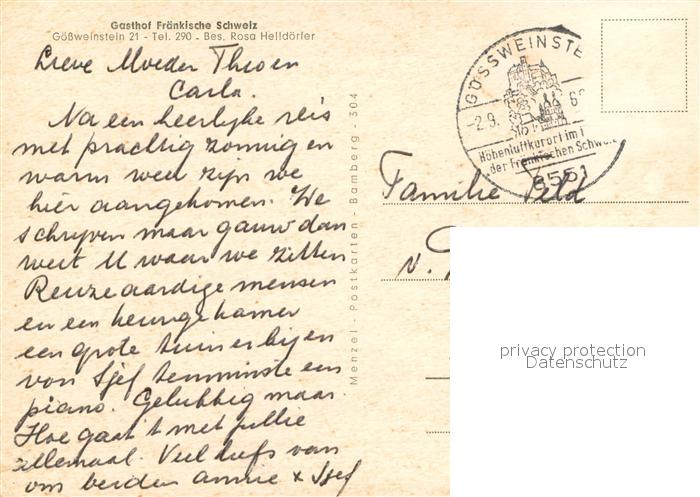 Gasthof Fränkische Schweiz
Gößweinstein 21 - Tel. 290 - Bes. Rosa Helldörfer
Lieve Moeder Theo en
Carla.
Na een heerlijke reis
met prachtig zonnig en
warm weer zijn we
hier aangekomen. We
schrijven maar gauw dan
weet U waar we zitten
Reuze aardige mensen
en een keurige kamer
een grote tuin erbij en
von Sjef tenminste een
piano. Gelukkig maar.
Hoe gaat 't met jullie
allemaal. Veel liefs van
om beiden Annie x Sjef
Menzel - Postkarten - Bamberg - 304
GÖSSWEINSTE
-2.9.
6
Höhenluftkurort im
der Fränkischen Schweiz
8551
Familie Veld
v.
privacy protection
Datenschutz